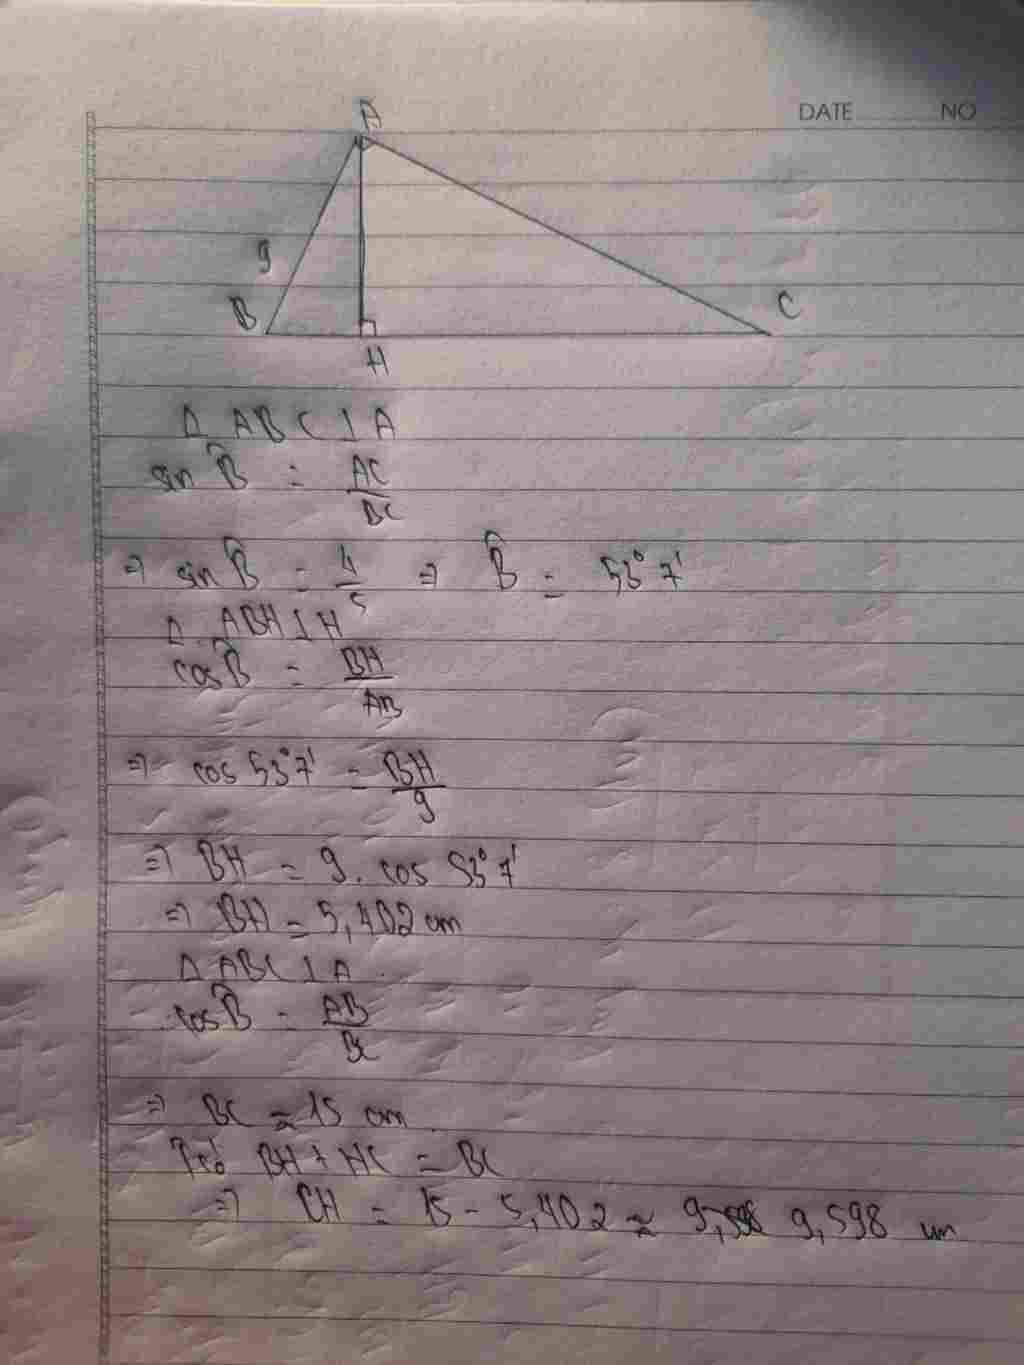 DATE NO
A
9
B
C
H
Δ ABC ⊥ A
sin B̂ = AC/BC
=> sin B̂ = 4/5 => B̂ = 53°7'
Δ ABH ⊥ H
cos B̂ = BH/AB
=> cos 53°7' = BH/9
=> BH = 9. cos 53°7'
=> BH = 5,402 cm
Δ ABC ⊥ A
cos B̂ = AB/BC
=> BC ≈ 15 cm
BH + HC = BC
=> CH = 15 - 5,402 ≈ 9,598 cm